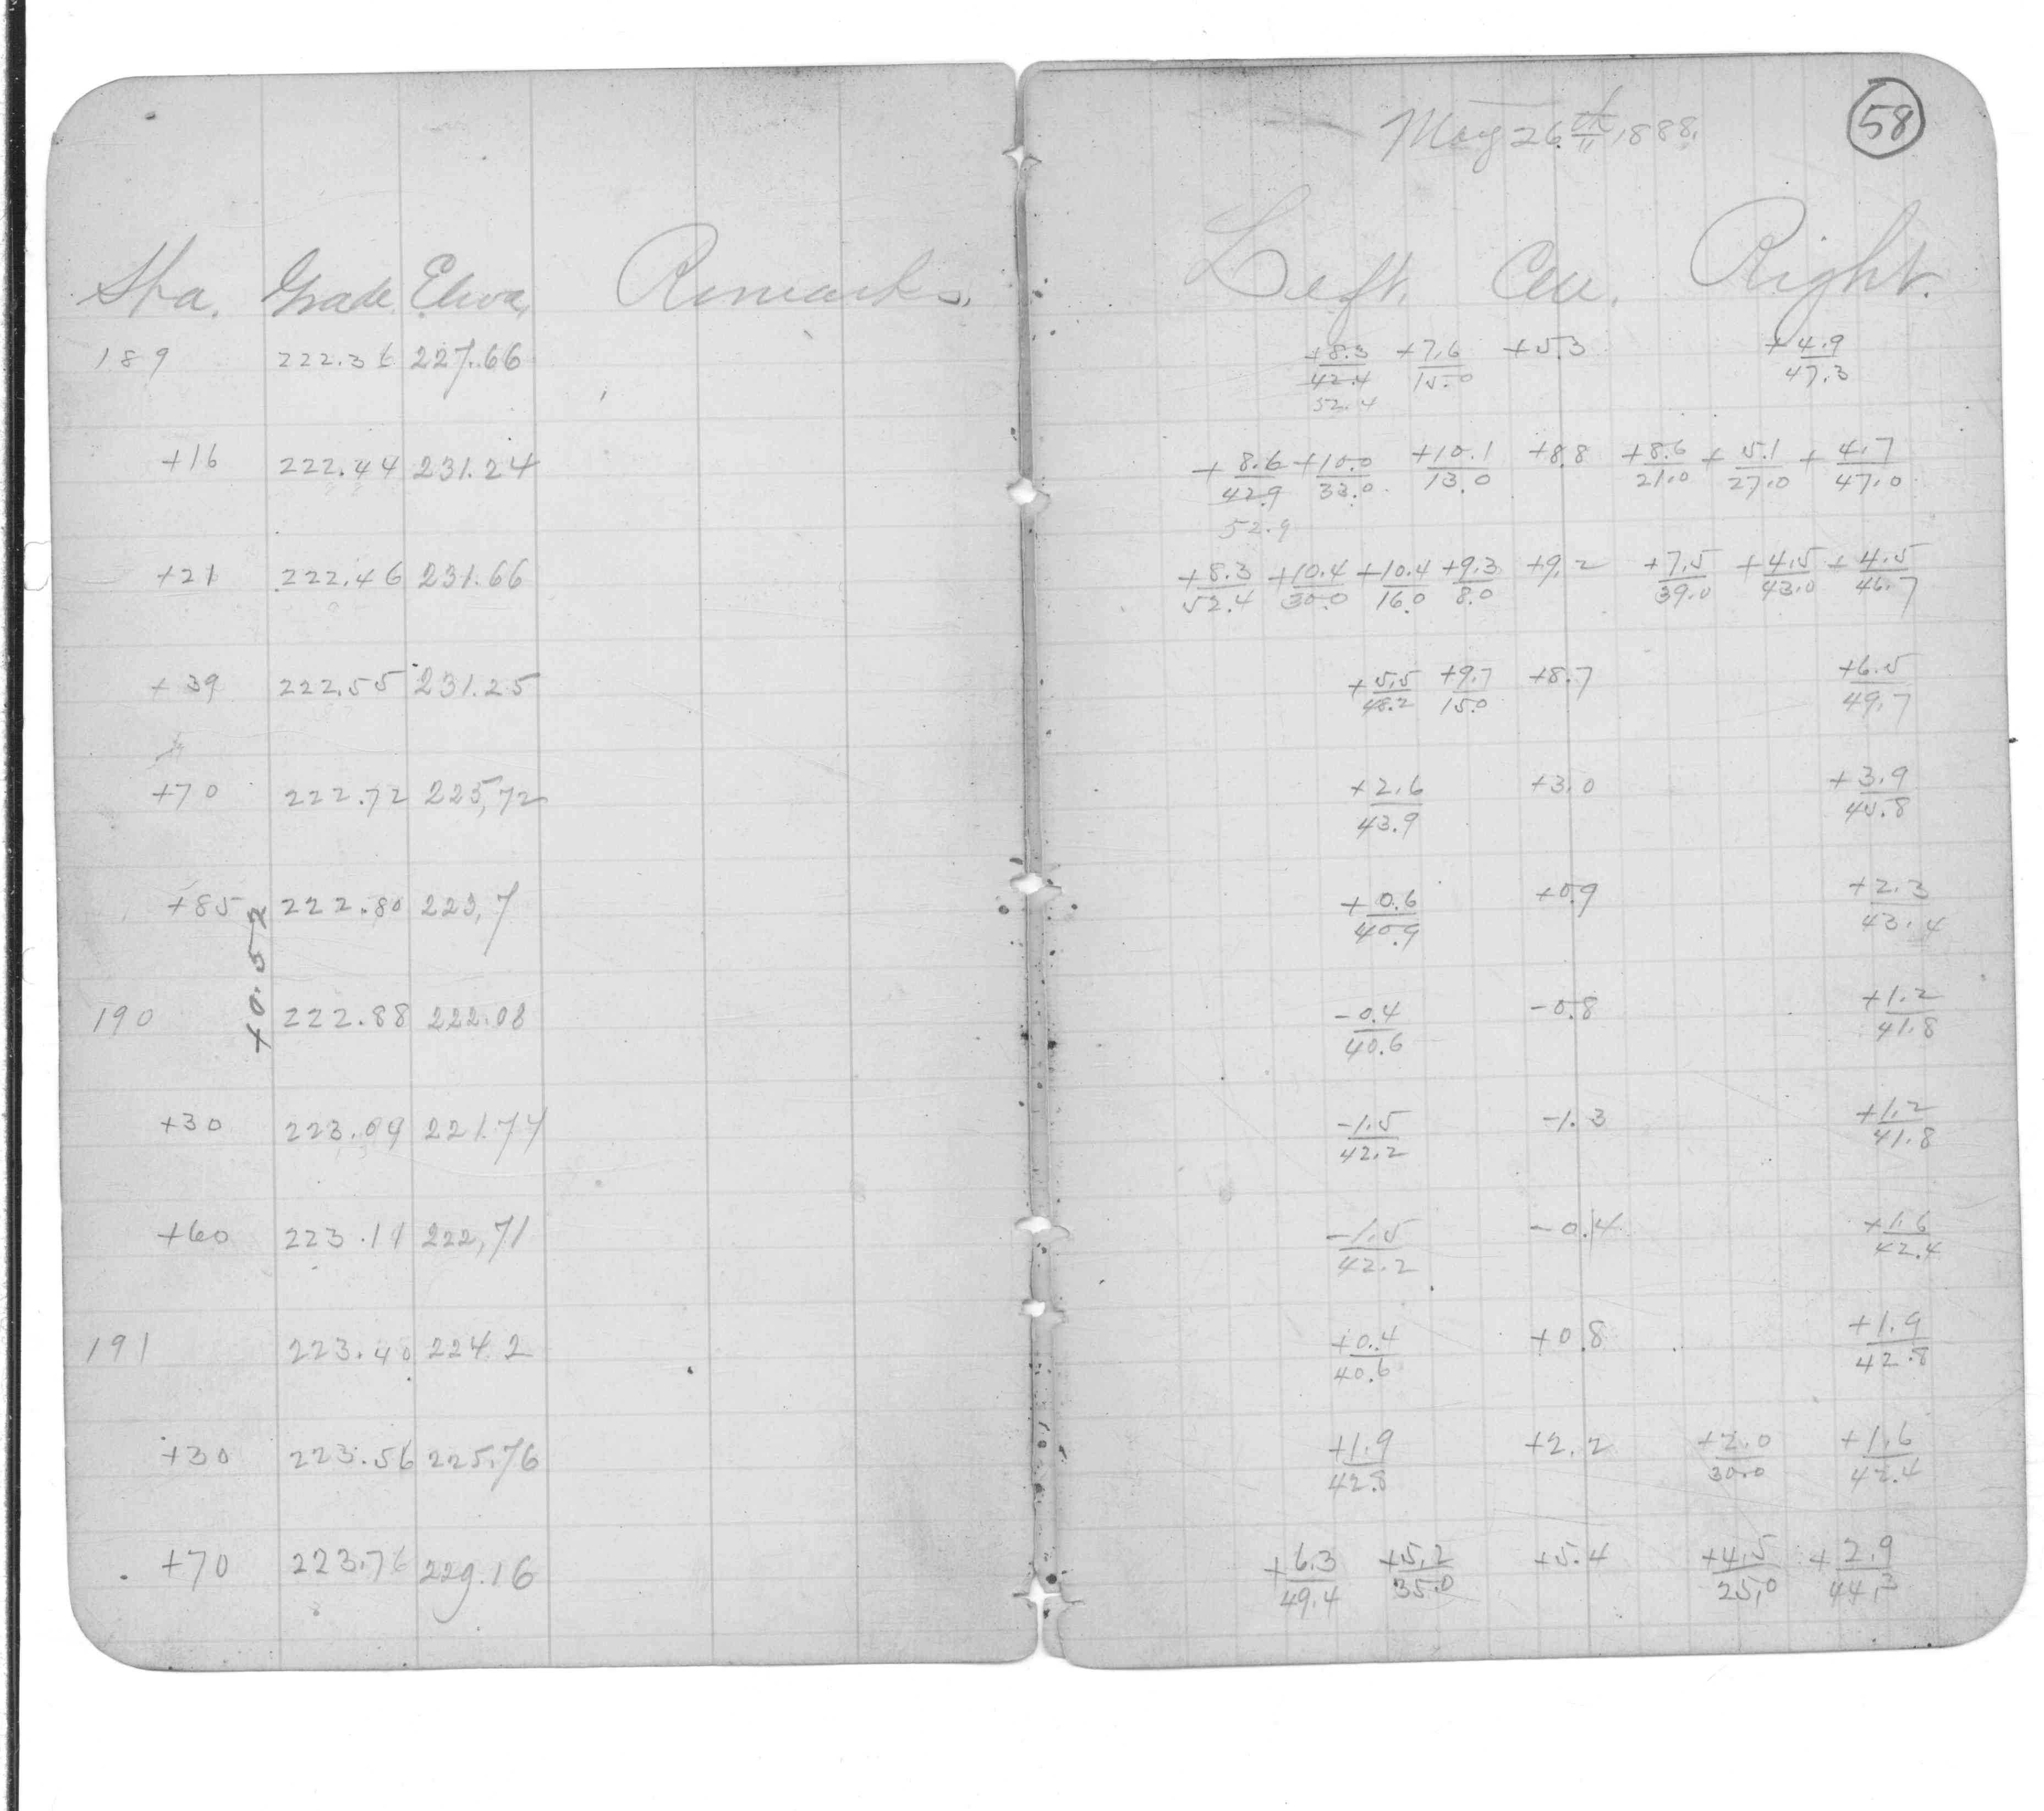 58
May 26th 1888.
Sta. Grade Eleva. Remarks. Left. Cen. Right.
189 222.36 227.66 +8.3/42.4 +7.6/15.0 +5.3 +4.9/47.3
52.4
+16 222.44 231.24 +8.6/42.9 +10.0/33.0 +10.1/13.0 +8.8 +8.6/21.0 +5.1/27.0 +4.7/47.0
52.9
+21 222.46 231.66 +8.3/52.4 +10.4/30.0 +10.4/16.0 +9.3/8.0 +9.2 +7.5/39.0 +4.5/43.0 +4.5/46.7
+39 222.55 231.25 +5.5/48.2 +9.7/15.0 +8.7 +6.5/49.7
+70 222.72 225,72 +2.6/43.9 +3.0 +3.9/45.8
+85 222.80 223,7 +0.6/40.9 +0.9 +2.3/43.4
+0.52
190 222.88 222.08 -0.4/40.6 -0.8 +1.2/41.8
+30 223.09 221.74 -1.5/42.2 -1.3 +1.2/41.8
+60 223.11 222,71 -1.5/42.2 -0.4 +1.6/42.4
191 223.40 224.2 +0.4/40.6 +0.8 +1.9/42.8
+30 223.56 225.76 +1.9/42.8 +2.2 +2.0/30.0 +1.6/42.4
+70 223.76 229.16 +6.3/49.4 +5.2/35.0 +5.4 +4.5/25.0 +2.9/44.3